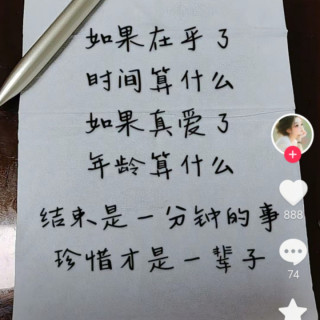 如果在乎了
时间算什么
如果真爱了
年龄算什么
结束是一分钟的事
珍惜才是一辈子
888
74